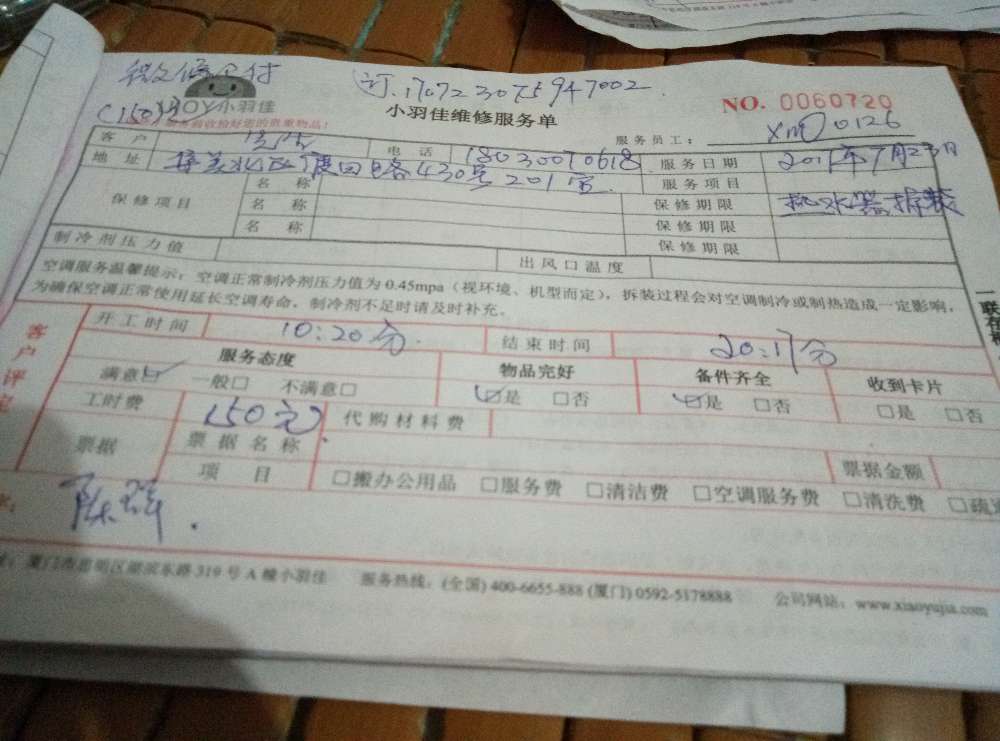 订.170723075947002
(150元)
XOY小羽佳
小羽佳维修服务单
NO. 0060720
验收检好您的贵重物品!
服务员工: XM00126
客户
电话 18030070618
服务日期 2017年7月23日
地址 集美北区 路430号201室
服务项目 热水器拆装
保修项目
名称 保修期限
名称 保修期限
名称 保修期限
制冷剂压力值
出风口温度
空调服务温馨提示:空调正常制冷剂压力值为0.45mpa(视环境、机型而定),拆装过程会对空调制冷或制热造成一定影响,
为确保空调正常使用延长空调寿命,制冷剂不足时请及时补充。
一联存根
客户评定
开工时间 10:20分
结束时间 20:17分
服务态度 物品完好 备件齐全 收到卡片
满意☑ 一般□ 不满意□ ☑是 □否 ☑是 □否 □是 □否
工时费 150元
代购材料费
票据
票据名称
票据金额
项目 □搬办公用品 □服务费 □清洁费 □空调服务费 □清洗费 □疏通
厦门市思明区湖滨东路319号A幢小羽佳 服务热线:(全国)400-6655-888 (厦门)0592-5178888 公司网站:www.xiaoyujia.com